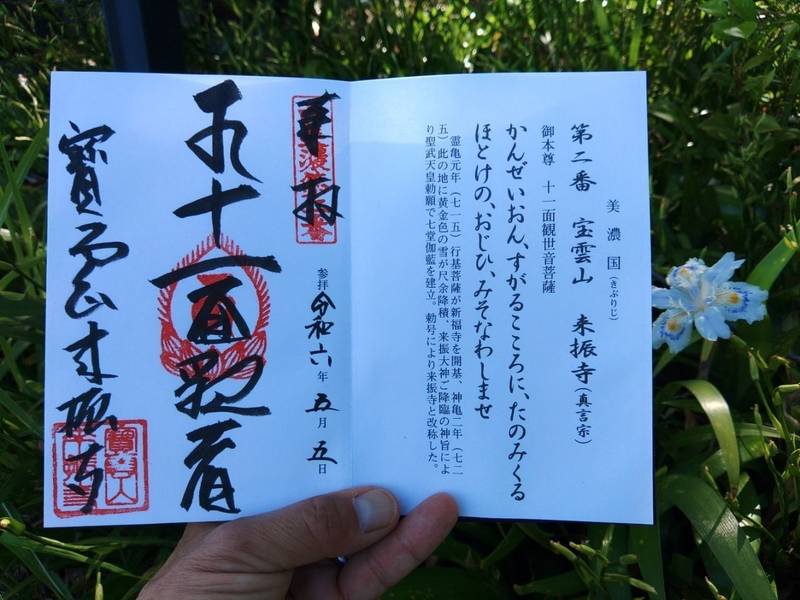 美濃国
(きぶりじ)
第二番 宝雲山 来振寺(真言宗)
御本尊 十一面観世音菩薩
かんぜいおん、すがるこころに、たのみくる
ほとけの、おじひ、みそなわしませ
霊亀元年(七一五)行基菩薩が新福寺を開基、神亀二年(七二
五)此の地に黄金色の雪が尺余降積、来振大神ご降臨の神旨によ
り聖武天皇勅願で七堂伽藍を建立。勅号により来振寺と改称した。
奉拝
参拝 令和六年五月五日
十一面観音
寳雲山来振寺